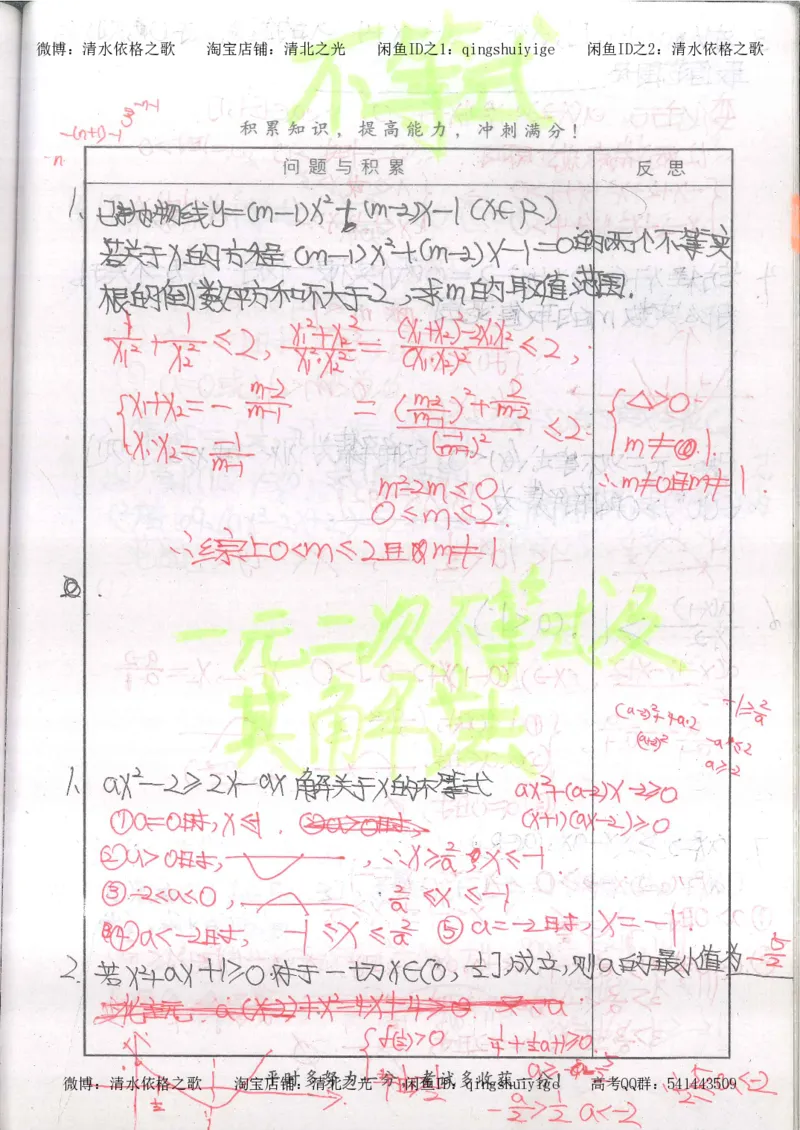 微博：清水依格之歌 淘宝店铺：清北之光 闲鱼ID之1：qingshuiyige 闲鱼ID之2：清水依格之歌
不等式
积累知识，提高能力，冲刺满分！
问题与积累 反思
1、已知抛物线y=(m-1)x²+(m-2)x-1 (x∈R)
若关于x的方程(m-1)x²+(m-2)x-1=0的两个不等实
根的倒数平方和不大于2，求m的取值范围.
1/x₁²+1/x₂²≤2, (x₁²+x₂²)/(x₁²·x₂²)=((x₁+x₂)²-2x₁x₂)/(x₁·x₂)²≤2,
{x₁+x₂=-(m-2)/(m-1)
x₁·x₂=-1/(m-1)
{△>0
m≠1.
∴m≠0且m≠1.
m²-2m≤0
0≤m≤2
∴综上0<m≤2且m≠1
一元二次不等式及
其解法
(a-2)²+4a·2
(a+2)²
-1≥2/a
-a≤2
a≥-2
1、ax²-2≥2x-ax解关于x的不等式 ax²+(a-2)x-2≥0
①a=0时,x≤-1. (x+1)(ax-2)≥0
②a>0时, ∴x≥2/a或x≤-1
③-2<a<0, 2/a≤x≤-1
④a<-2时, -1≤x≤2/a ⑤a=-2时,x=-1.
2、若x²+ax+1≥0对于一切x∈(0,1/2]成立,则a的最小值为-5/2
1/4+1/2a+1≥0
平时多努力一分，考试多收获一分！
微博：清水依格之歌 淘宝店铺：清北之光 闲鱼ID之1：qingshuiyige 高考QQ群：541443509
-a/2>1/2 a<-2